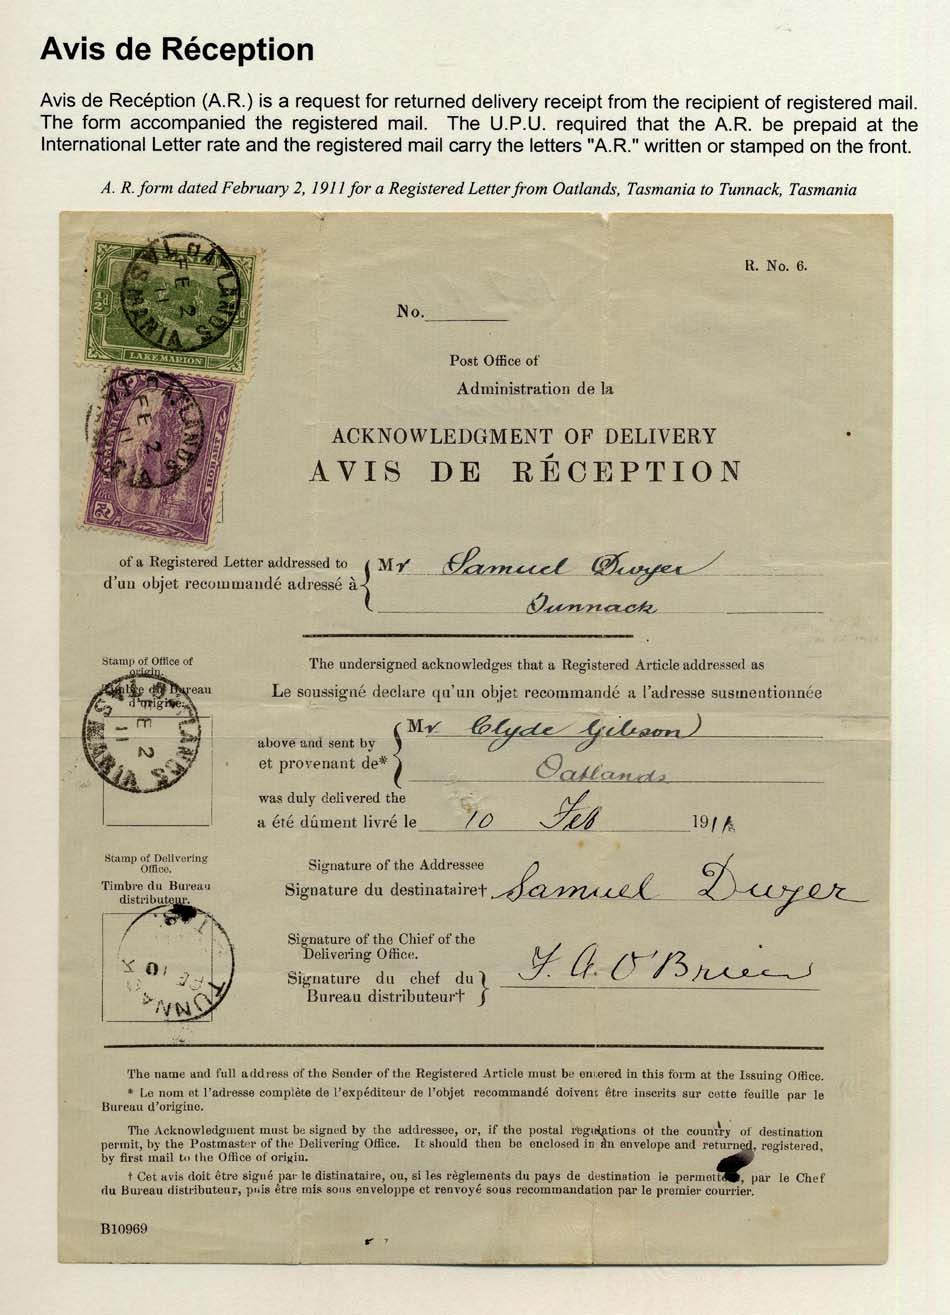 Avis de Réception
Avis de Recéption (A.R.) is a request for returned delivery receipt from the recipient of registered mail.
The form accompanied the registered mail. The U.P.U. required that the A.R. be prepaid at the
International Letter rate and the registered mail carry the letters "A.R." written or stamped on the front.
A. R. form dated February 2, 1911 for a Registered Letter from Oatlands, Tasmania to Tunnack, Tasmania
R. No. 6.
OATLANDS
FE 2
11
TASMANIA
½d
LAKE MARION
No.
Post Office of
Administration de la
ACKNOWLEDGMENT OF DELIVERY
AVIS DE RÉCEPTION
OATLANDS
FE 2
11
TASMANIA
HOBART
2d
of a Registered Letter addressed to
d'un objet recommandé adressé à
Mr Samuel Dwyer
Tunnack
Stamp of Office of
origin.
Timbre du Bureau
d'origine.
OATLANDS
FE 2
11
The undersigned acknowledges that a Registered Article addressed as
Le soussigné declare qu'un objet recommandé a l'adresse susmentionnée
above and sent by
et provenant de*
Mr Clyde Gibson
Oatlands
was duly delivered the
a été dûment livré le 10 Feb 1911
Stamp of Delivering
Office.
Timbre du Bureau
distributeur.
TUNNACK
FE 10
Signature of the Addressee
Signature du destinataire† Samuel Dwyer
Signature of the Chief of the
Delivering Office.
Signature du chef du
Bureau distributeur†
F. A. O'Brien
The name and full address of the Sender of the Registered Article must be entered in this form at the Issuing Office.
* Le nom et l'adresse complète de l'expéditeur de l'objet recommandé doivent être inscrits sur cette feuille par le
Bureau d'origine.
The Acknowledgment must be signed by the addressee, or, if the postal regulations of the country of destination
permit, by the Postmaster of the Delivering Office. It should then be enclosed in an envelope and returned, registered,
by first mail to the Office of origin.
† Cet avis doit être signé par le distinataire, ou, si les règlements du pays de destination le permettent, par le Chef
du Bureau distributeur, puis être mis sous enveloppe et renvoyé sous recommandation par le premier courrier.
B10969